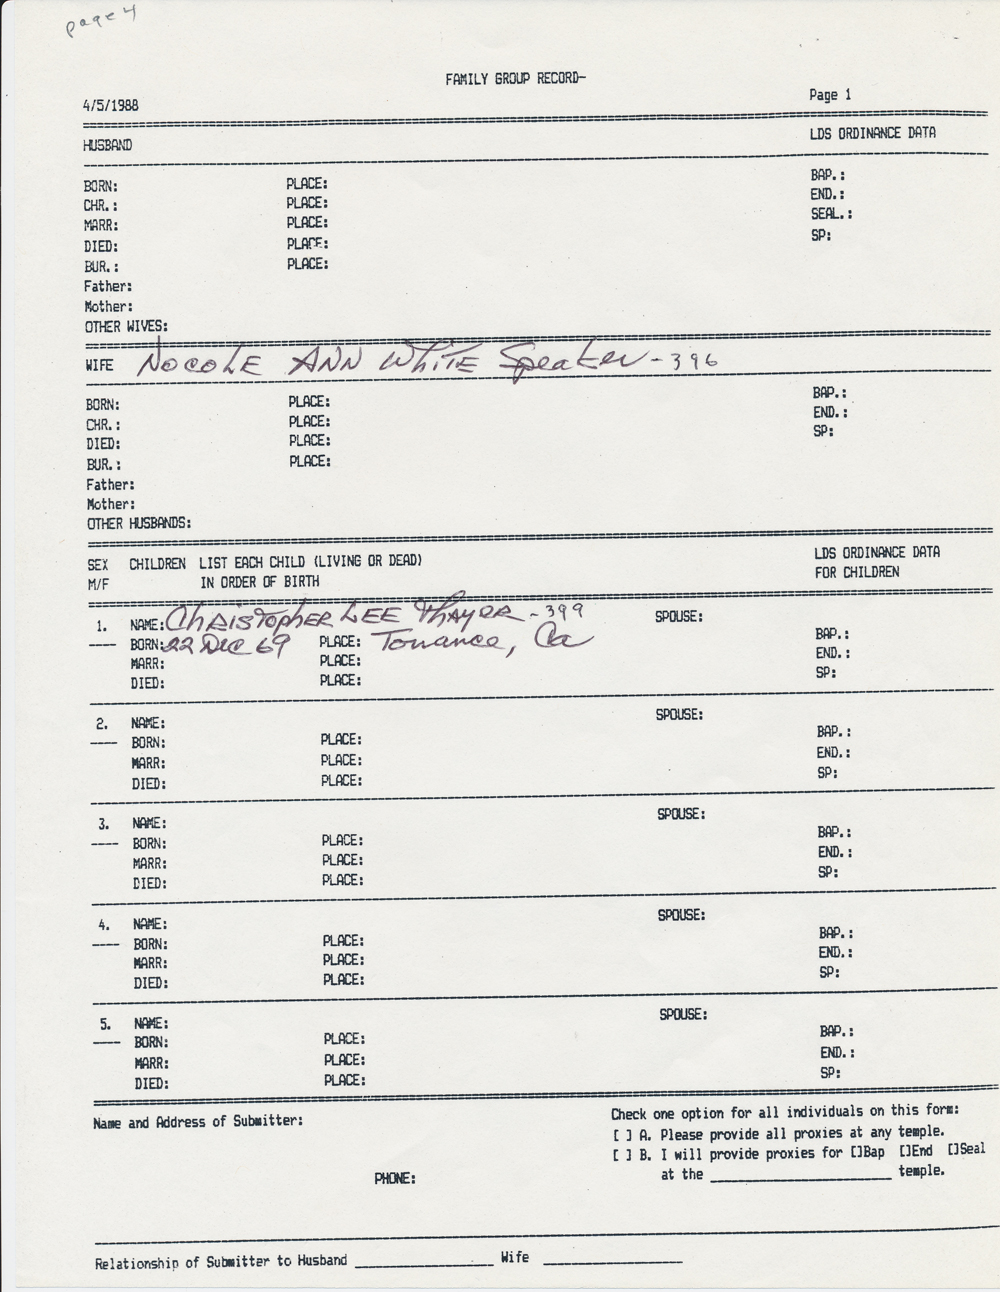 page 4
FAMILY GROUP RECORD-
4/5/1988 Page 1
HUSBAND LDS ORDINANCE DATA
BORN: PLACE: BAP.:
CHR.: PLACE: END.:
MARR: PLACE: SEAL.:
DIED: PLACE: SP:
BUR.: PLACE:
Father:
Mother:
OTHER WIVES:
WIFE NOCOLE ANN WHITE Speaker - 396
BORN: PLACE: BAP.:
CHR.: PLACE: END.:
DIED: PLACE: SP:
BUR.: PLACE:
Father:
Mother:
OTHER HUSBANDS:
SEX CHILDREN LIST EACH CHILD (LIVING OR DEAD) LDS ORDINANCE DATA
M/F IN ORDER OF BIRTH FOR CHILDREN
1. NAME: ChRISTOPHER LEE THAYER - 399 SPOUSE:
---- BORN: 22 DEC 69 PLACE: Torrance, Ca BAP.:
MARR: PLACE: END.:
DIED: PLACE: SP:
2. NAME: SPOUSE:
---- BORN: PLACE: BAP.:
MARR: PLACE: END.:
DIED: PLACE: SP:
3. NAME: SPOUSE:
---- BORN: PLACE: BAP.:
MARR: PLACE: END.:
DIED: PLACE: SP:
4. NAME: SPOUSE:
---- BORN: PLACE: BAP.:
MARR: PLACE: END.:
DIED: PLACE: SP:
5. NAME: SPOUSE:
---- BORN: PLACE: BAP.:
MARR: PLACE: END.:
DIED: PLACE: SP:
Name and Address of Submitter: Check one option for all individuals on this form:
[ ] A. Please provide all proxies at any temple.
[ ] B. I will provide proxies for []Bap []End []Seal
PHONE: at the ____________________ temple.
Relationship of Submitter to Husband _______________ Wife _______________